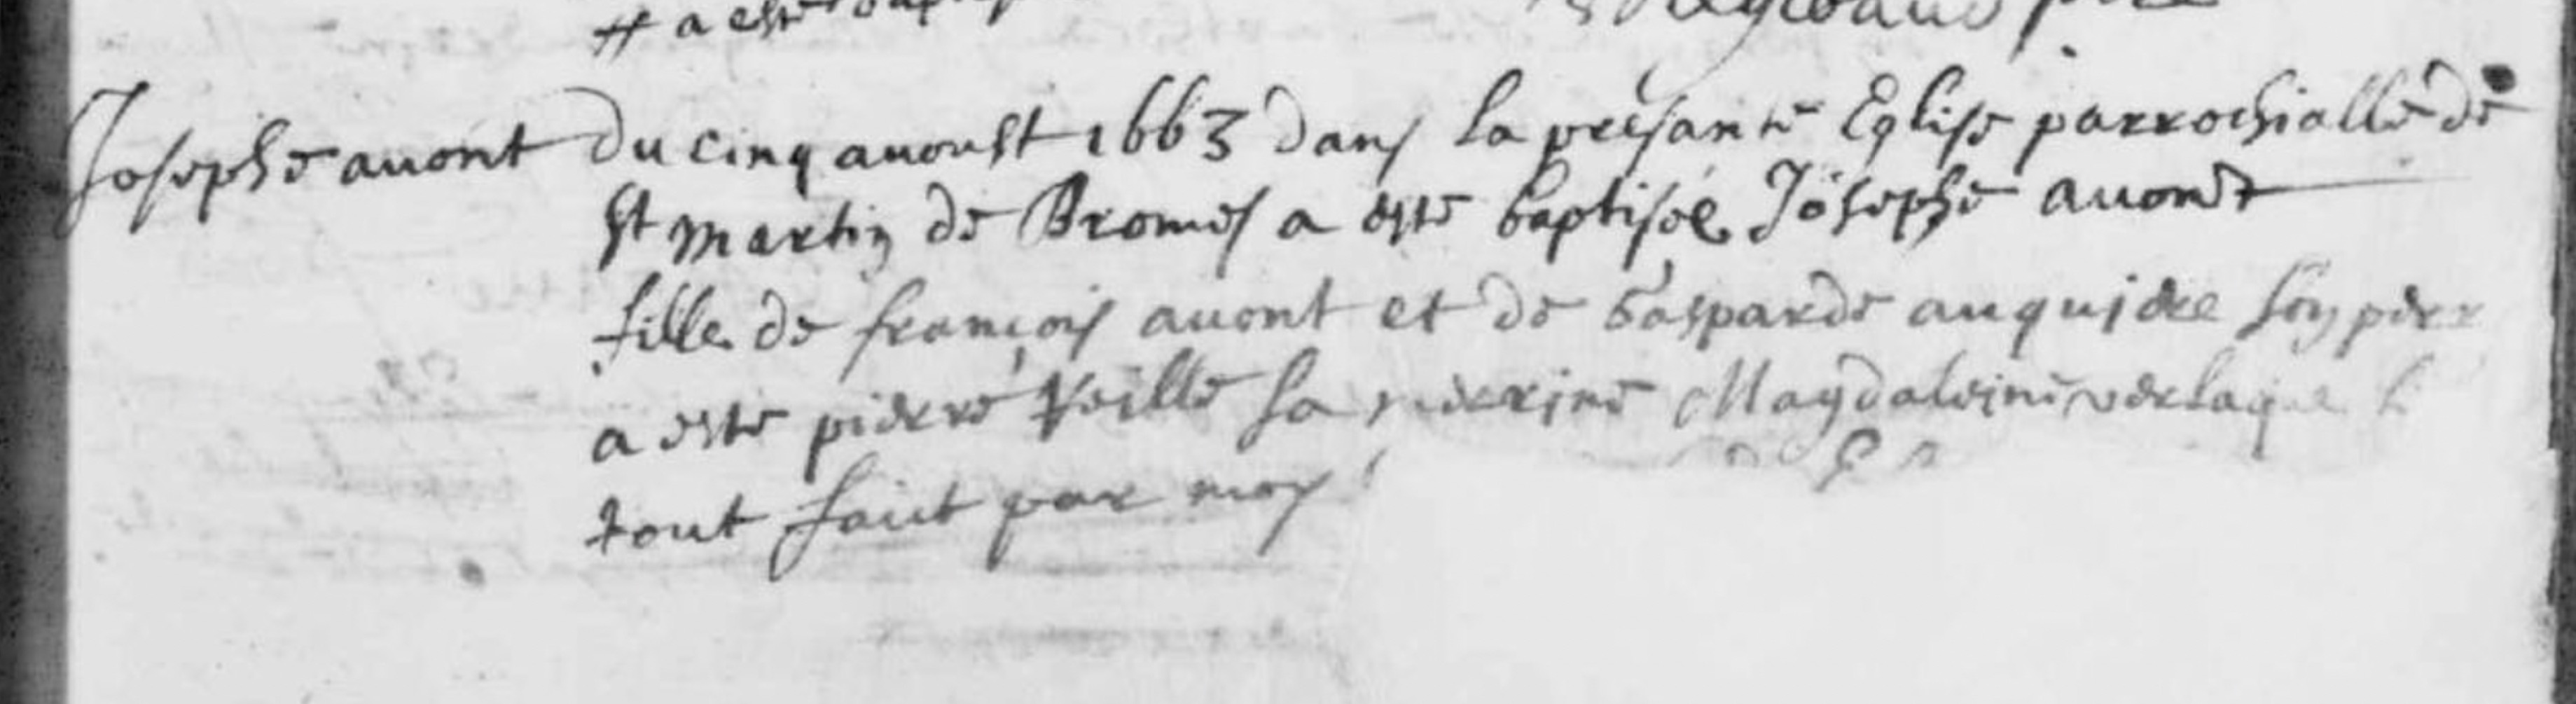 # a esté bap
Josephe auont
du cinq auoust 1663 dans la presante Eglise parrochialle de
st martin de Bromes a esté baptisée Josephe auont
fille de françois auont et de gasparde auquiere son perr
a esté pierre veille sa merine Magdaleine verlaque
tout fait par moy